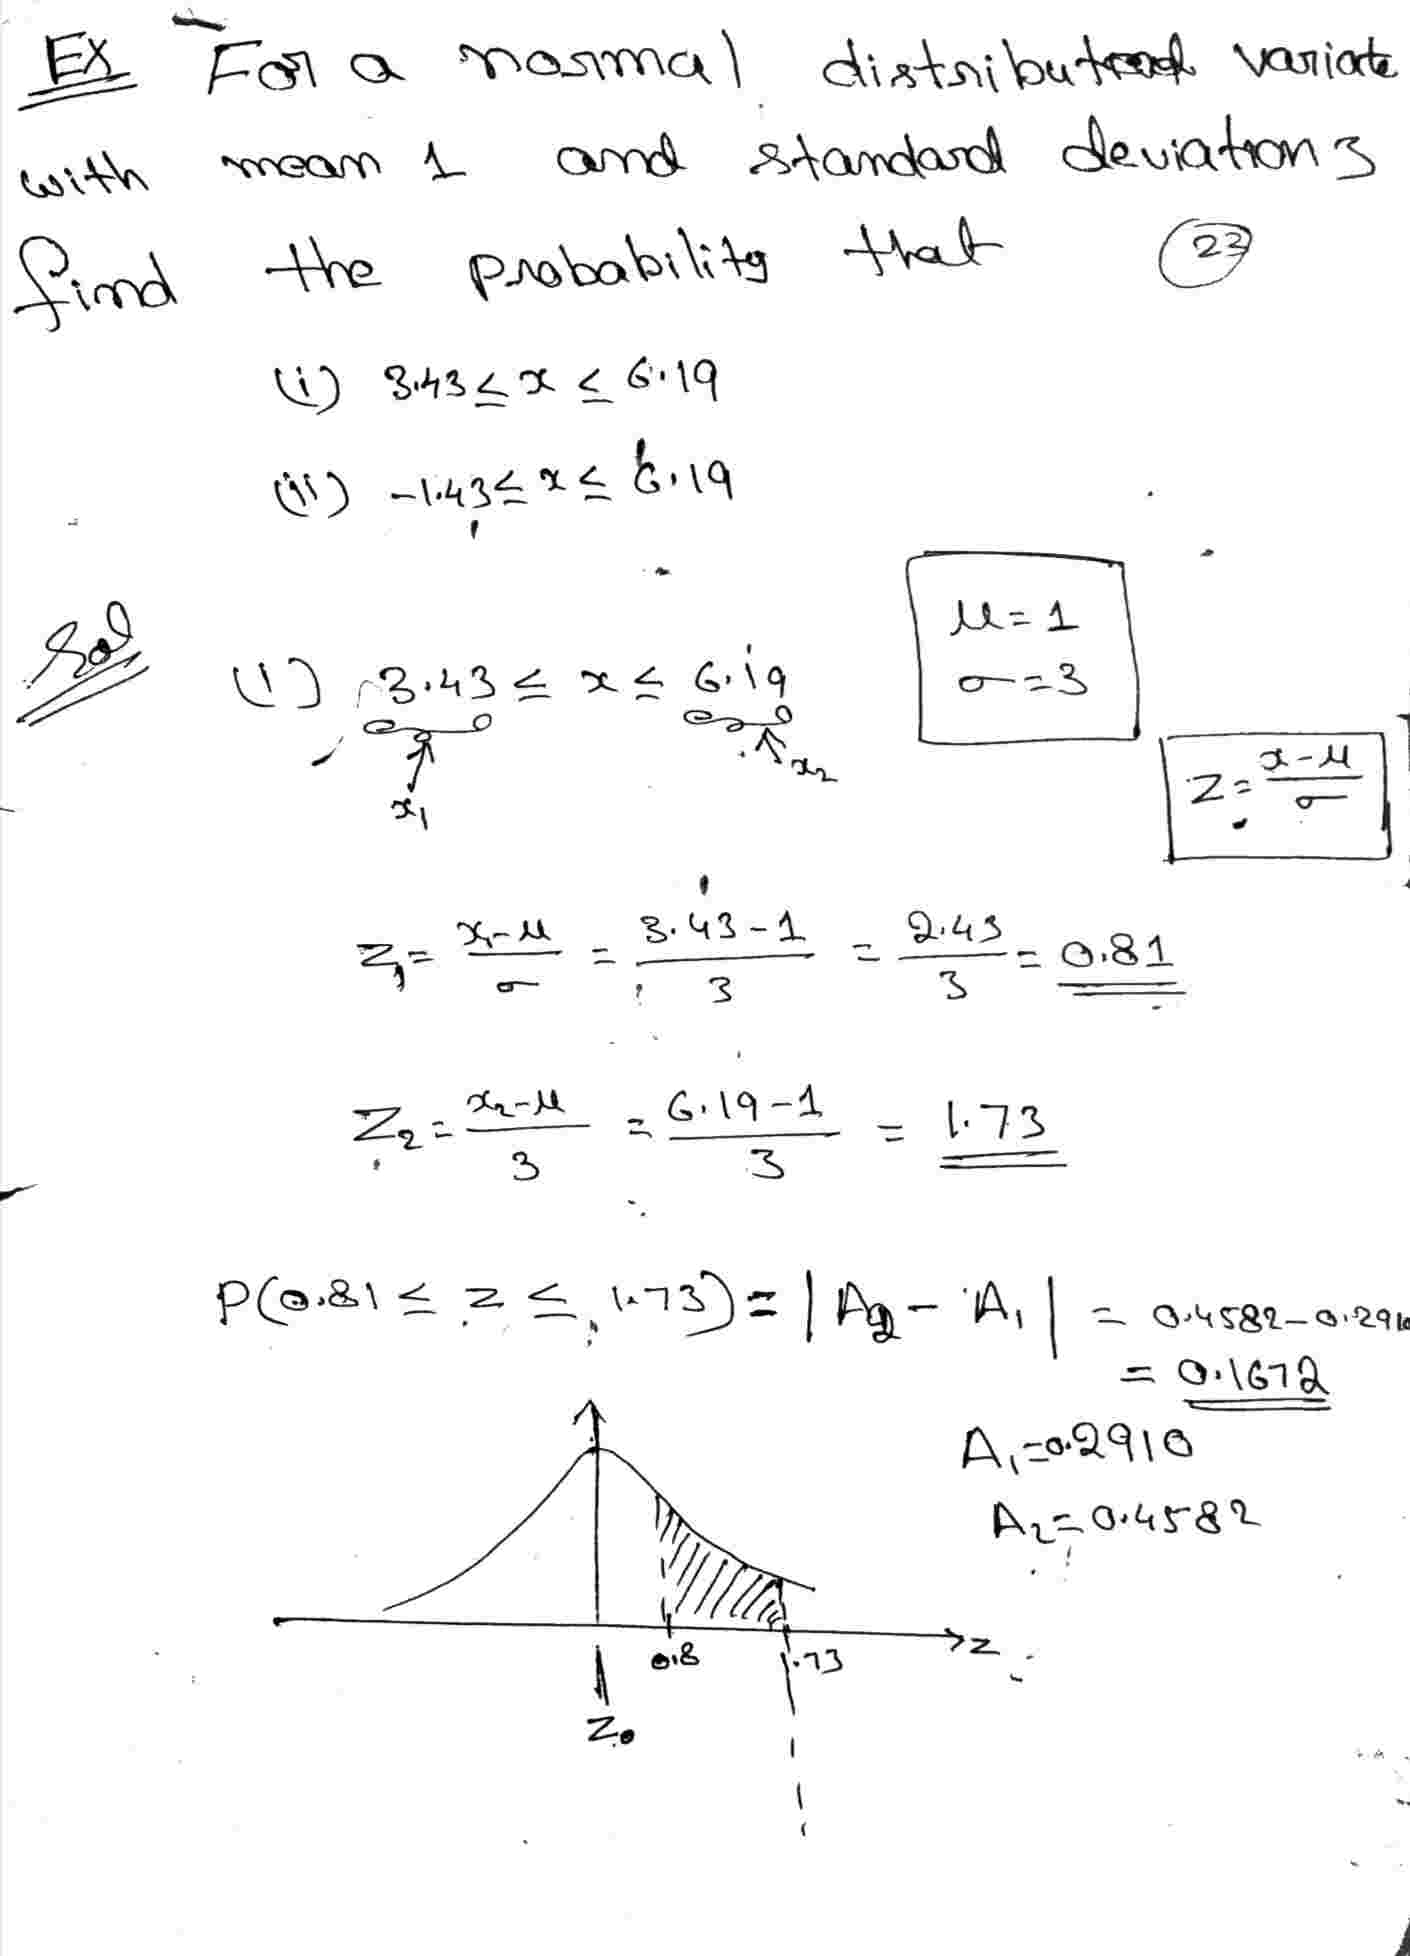 Ex For a normal distributed variate
with mean 1 and standard deviation 3
find the probability that (23)
(i) 3.43 ≤ x ≤ 6.19
(ii) -1.43 ≤ x ≤ 6.19
μ = 1
σ = 3
Sol (i) 3.43 ≤ x ≤ 6.19
x₁ x₂
Z = x-μ / σ
Z₁ = x₁-μ / σ = 3.43-1 / 3 = 2.43 / 3 = 0.81
Z₂ = x₂-μ / 3 = 6.19-1 / 3 = 1.73
P(0.81 ≤ z ≤ 1.73) = |A₂ - A₁| = 0.4582-0.2910
= 0.1672
A₁ = 0.2910
A₂ = 0.4582
0.8 1.73 z
Z₀